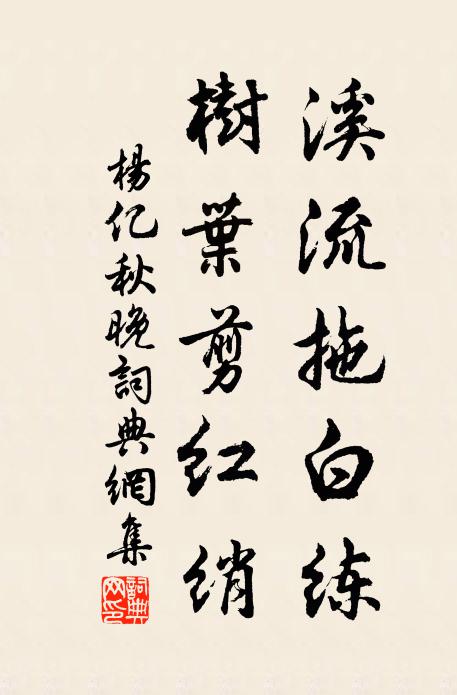 溪流拖白练
樹葉剪红绡
楊亿秋晚詞典網集
詞典网印